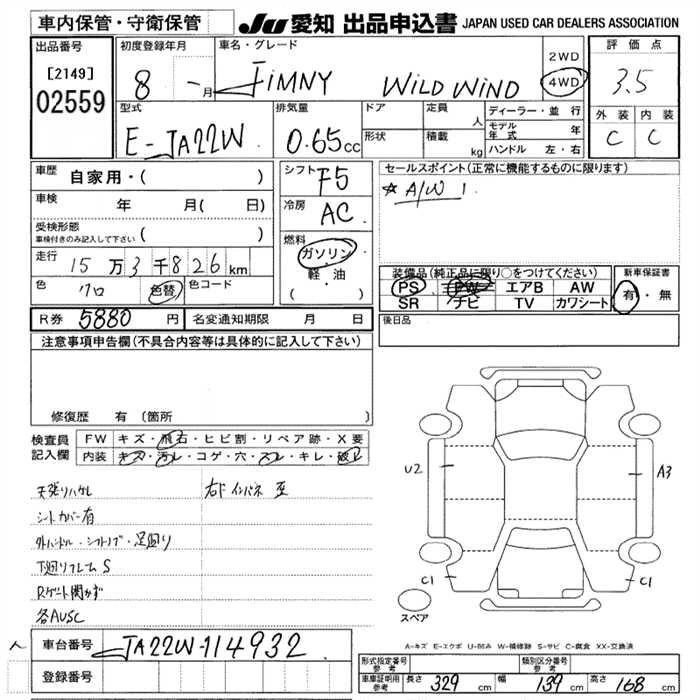 車内保管・守衛保管
JU 愛知 出品申込書 JAPAN USED CAR DEALERS ASSOCIATION
出品番号
[2149]
02559
初度登録年月
8 - 月
車名・グレード
JIMNY WILD WIND
2WD
4WD
評価点
3.5
外装 内装
C C
型式
E-JA22W
排気量
0.65cc
ドア
形状
定員 人
積載 kg
ディーラー・並行
モデル年式 年
ハンドル 左・右
車歴
自家用・( )
車検
年 月( 日)
受検形態
車検付きのみ記入して下さい ( )
走行
15万3千826km
色
クロ
色替
色コード
シフト
F5
冷房
AC
燃料
ガソリン
軽・油
( )
セールスポイント(正常に機能するものに限ります)
☆A/W 1
装備品(純正品に限り○をつけてください)
PS PW エアB AW
SR ナビ TV カワシート
新車保証書
有・無
R券 5880円 名変通知期限 月 日
後日品
注意事項申告欄(不具合内容等は具体的に記入して下さい)
修復歴 有(箇所 )
検査員記入欄
FW キズ・飛石・ヒビ割・リペア跡・X要
内装 キズ・汚レ・コゲ・穴・スレ・キレ・破レ
天張りハガレ
右ドインパネ
シートカバー有
外ハンドル・シフトノブ・足廻り
下廻りフレームS
Rゲート開かず
各AUSC
U2
A3
C1
C1
スペア
A-キズ E-エクボ U-凹み W-補修跡 S-サビ C-腐食 XX-交換済
車台番号
JA22W-114932
登録番号
形式指定番号 参考
類別区分番号 参考
車庫証明用 参考 長さ 329cm 幅 139cm 高さ 168cm